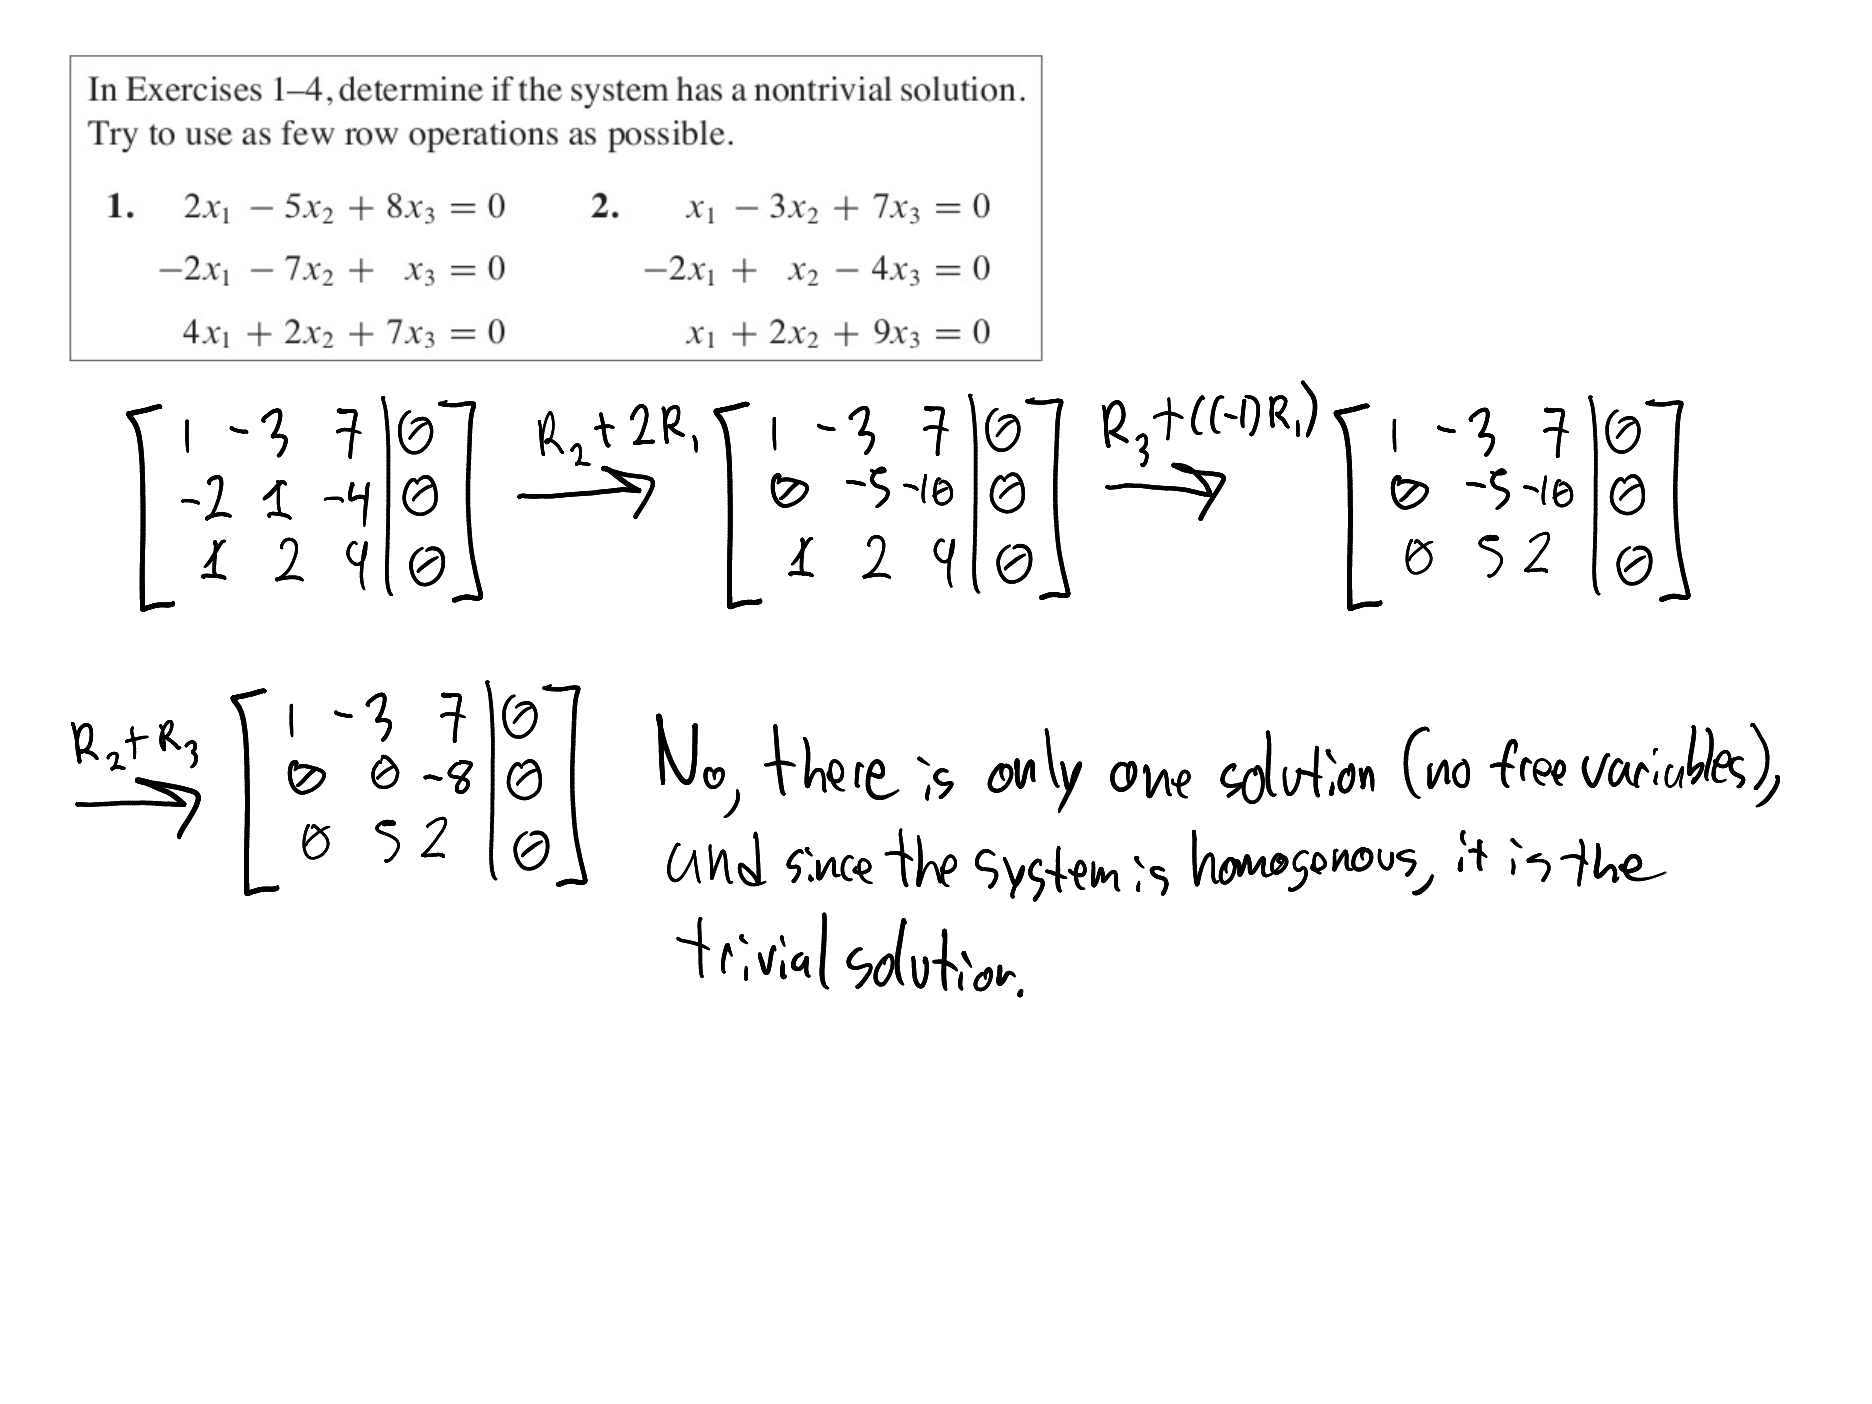 In Exercises 1–4, determine if the system has a nontrivial solution.
Try to use as few row operations as possible.
1. 2x₁ − 5x₂ + 8x₃ = 0
−2x₁ − 7x₂ + x₃ = 0
4x₁ + 2x₂ + 7x₃ = 0
2. x₁ − 3x₂ + 7x₃ = 0
−2x₁ + x₂ − 4x₃ = 0
x₁ + 2x₂ + 9x₃ = 0
1 -3 7 | 0
-2 1 -4 | 0
1 2 9 | 0
R₂+2R₁ →
1 -3 7 | 0
0 -5 -10 | 0
1 2 9 | 0
R₃+((-1)R₁) →
1 -3 7 | 0
0 -5 -10 | 0
0 5 2 | 0
R₂+R₃ →
1 -3 7 | 0
0 0 -8 | 0
0 5 2 | 0
No, there is only one solution (no free variables),
and since the system is homogenous, it is the
trivial solution.